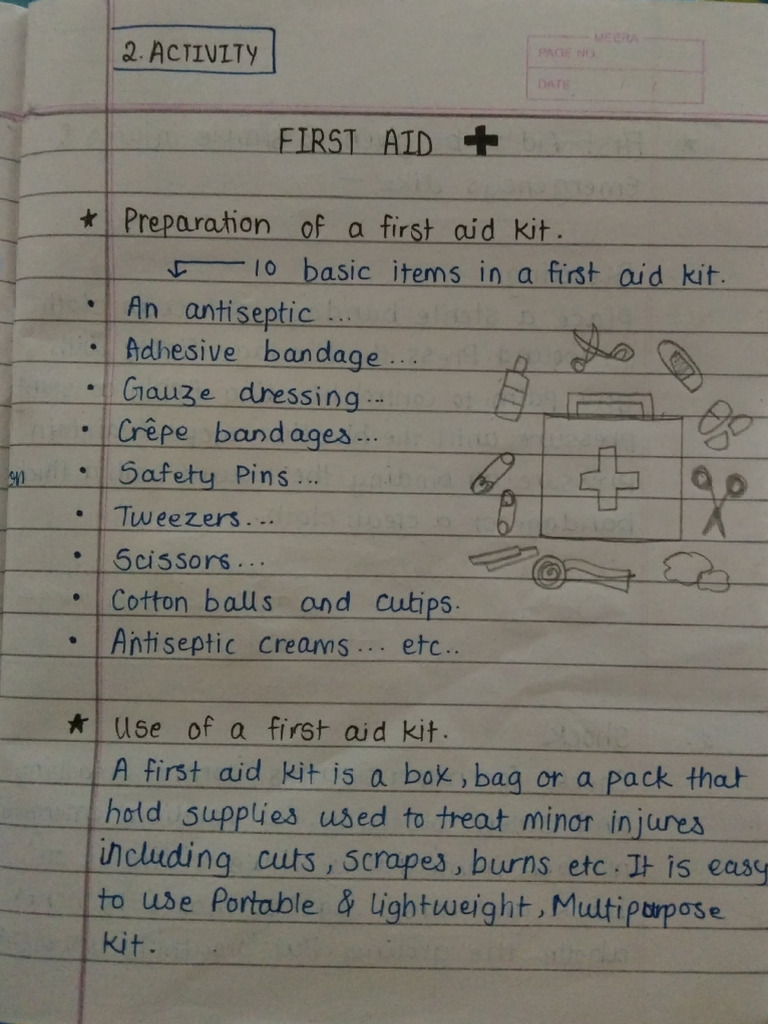 2. ACTIVITY
MEERA
PAGE NO
DATE / /
FIRST AID
★ Preparation of a first aid kit.
10 basic items in a first aid kit.
• An antiseptic...
• Adhesive bandage...
• Gauze dressing...
• Crêpe bandages...
• Safety Pins...
• Tweezers...
• Scissors...
• Cotton balls and cutips.
• Antiseptic creams... etc..
★ Use of a first aid kit.
A first aid kit is a box, bag or a pack that
hold supplies used to treat minor injures
including cuts, scrapes, burns etc. It is easy
to use Portable & lightweight, Multiparpose
kit.